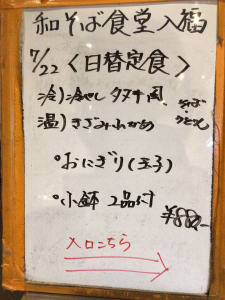 和そば食堂入福
7/22 <日替定食>
冷)冷やしタヌキ風
温)きざみわかめ
そば・うどん
°おにぎり(玉子)
°小鉢 2品付
¥880-
入口こちら